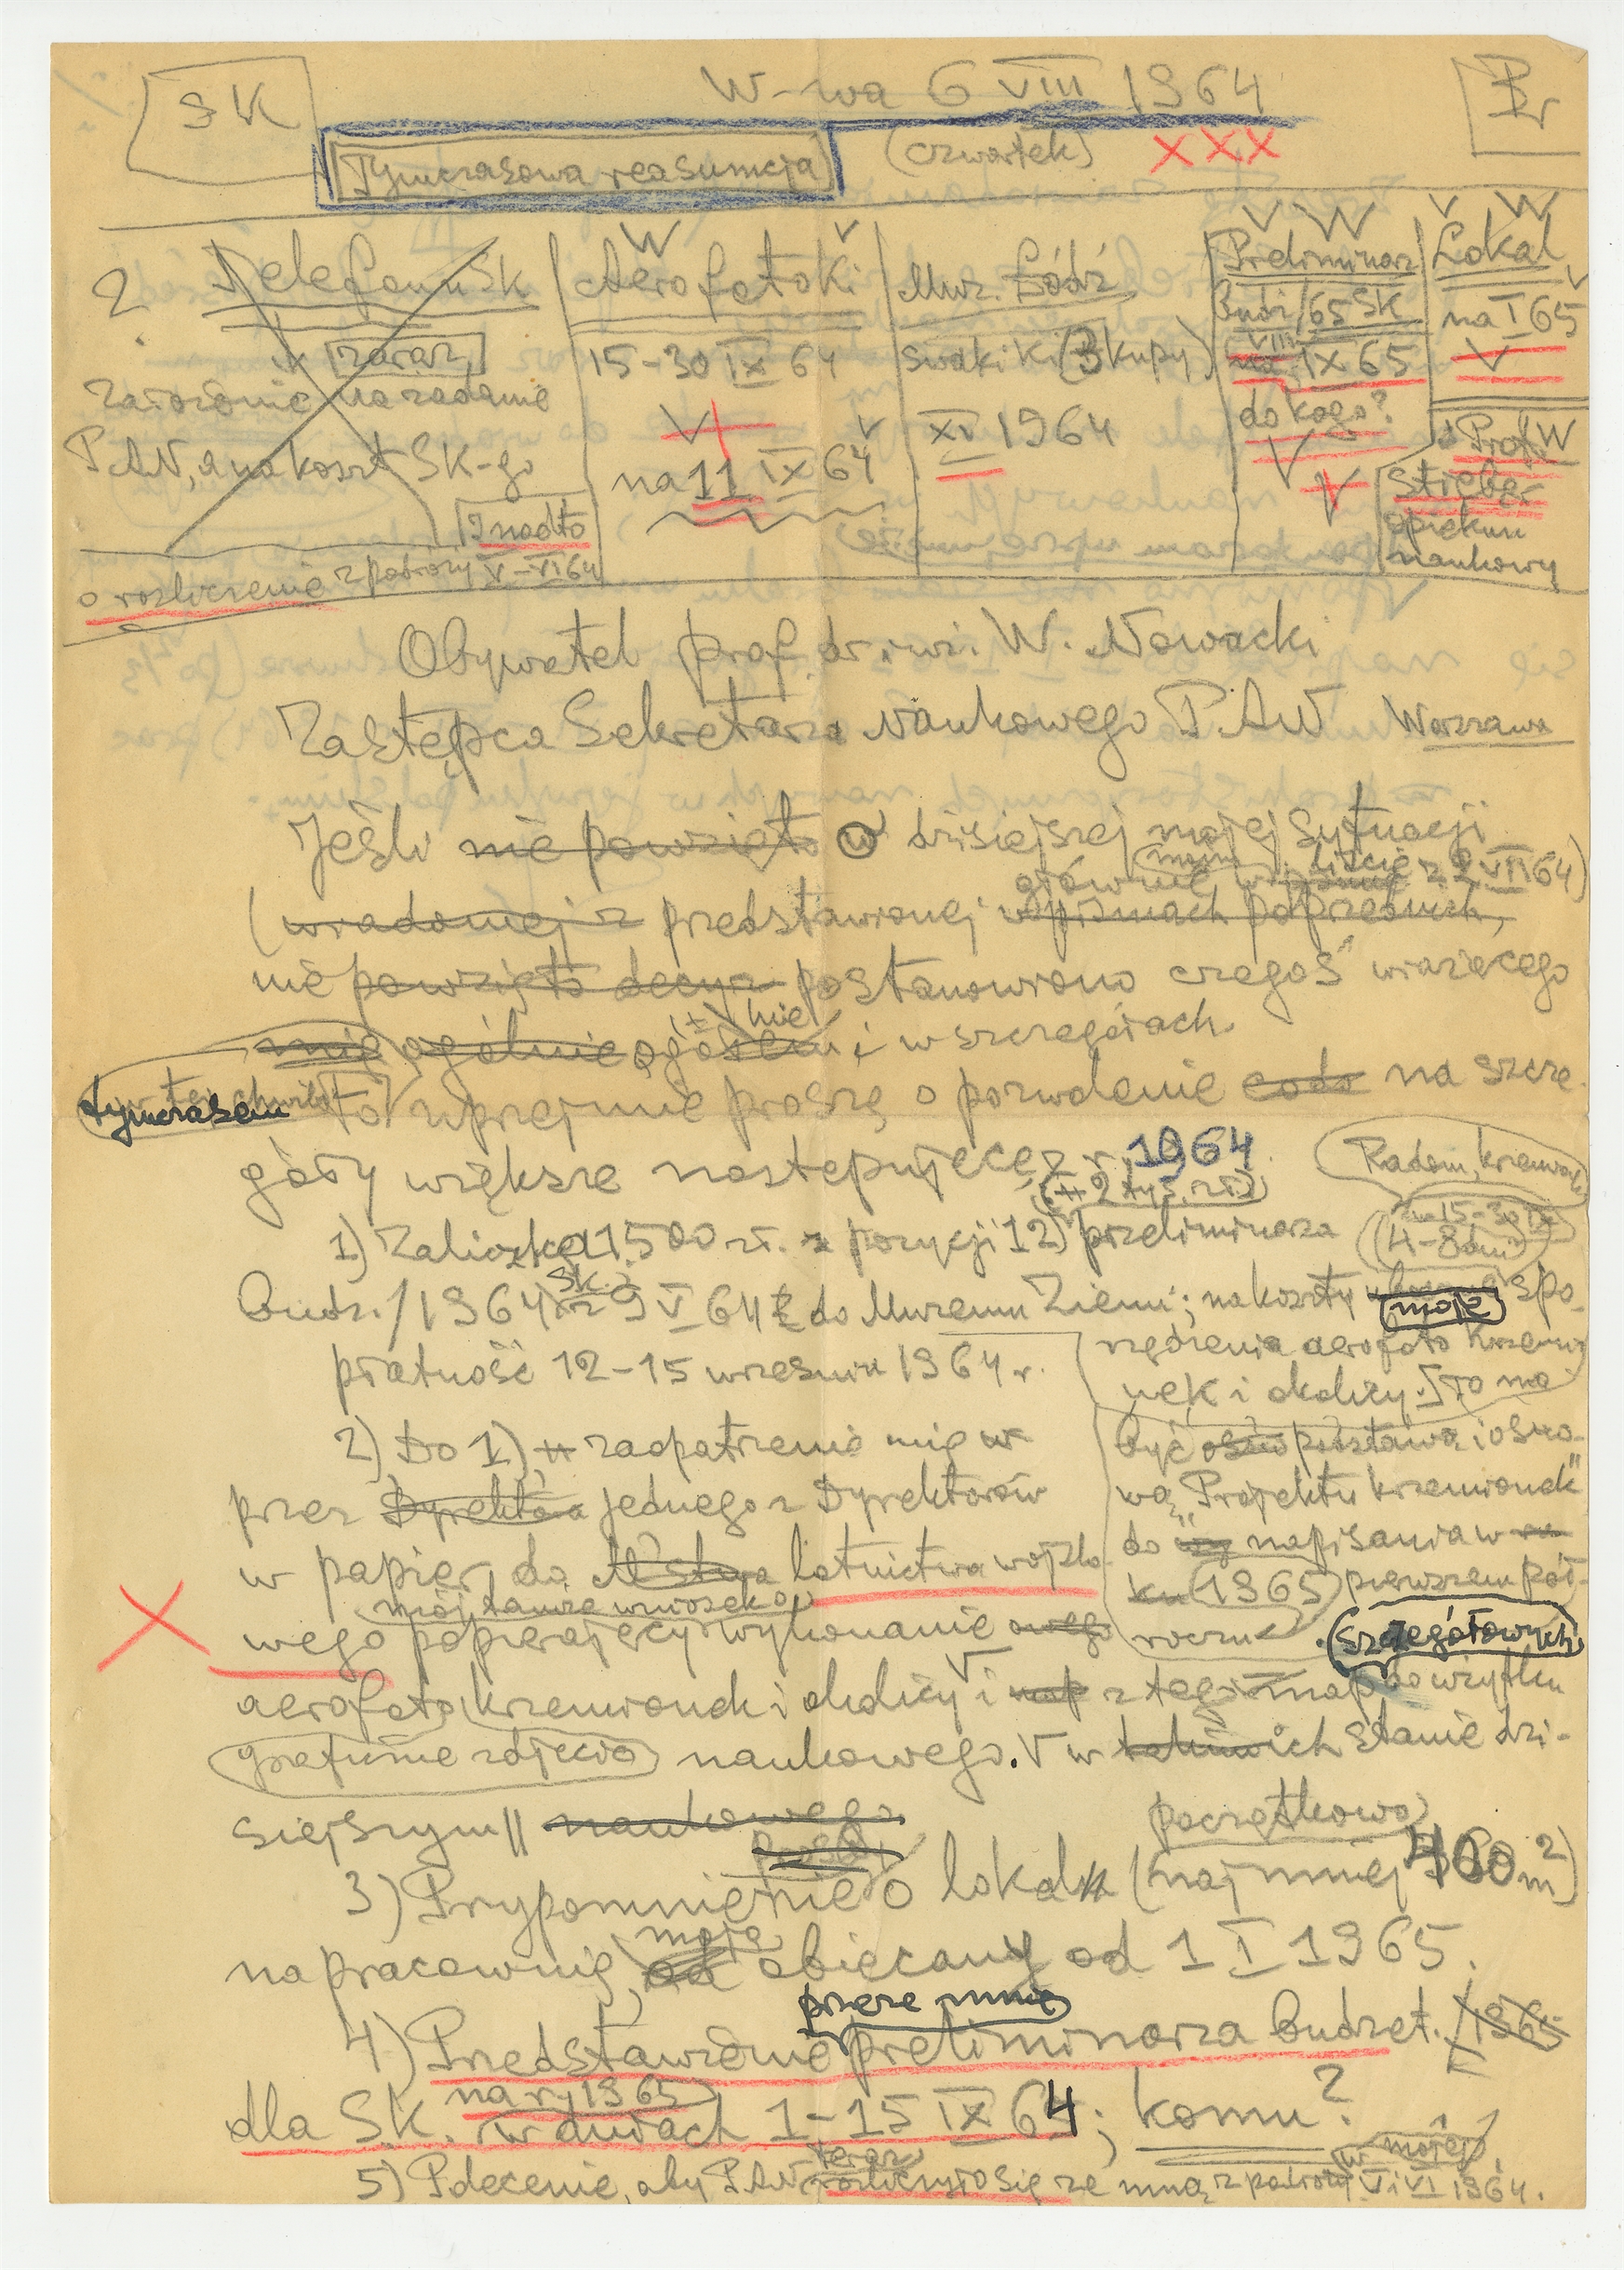 SK
W-wa 6 VIII 1964
Pr
Tymczasowa reasumcja
(czwartek) XXX
?
Telefonu SK
zaraz
założonie na żądanie
PAN, a na koszt SK-go
Znadto
o rozliczenie z podróży V-VI 64
Aerofotoki
15-30 IX 64
na 11 IX 64
Muz. Łódź
Swaki Ki (3 kupy)
XI 1964
Preliminarz
Budż/65 SK
VIII
na IX 65
do kogo?
Lokal
na I 65
Prof. W
Stieber
opiekun
naukowy
Obywatel prof. dr. inż. W. Nowacki
Zastępca Sekretarza Naukowego PAN Warszawa
Jeśli nie powzięto w dzisiejszej mojej sytuacji
głównie w piśmie liście z 2 VII 64)
(wiadomej z przedstawionej w pismach poprzednich,
nie powzięto decyz postanowiono czegoś wiążącego
mię ogólnie ogółem i w szczegółach.
tymczasem w tej chwili to uprzejmie proszę o pozwolenie co do na szcze-
góły większe następujące z r. 1964
(2 tyś. zł.)
1) Zaliczka 1500 zł. z pozycji 12) preliminarza
Budż./1964 SK. z 9 V 64 do Muzeum Ziemi; na koszty moje spo-
płatność 12-15 wrzesnia 1964 r.
Radom, krzemionki
15-30 IX
(4-8 dni)
rządzenia aerofoto Krzemio
nek i okolicy. To ma
być podstawą i osno-
wą "Projektu krzemionek"
do napisania w
1965 pierwszem pół-
roczu
2) Do 1) zaopatrzenie mię w
przez Dyrektora jednego z Dyrektorów
w papier do lotnictwa wojsko-
mój tamże wniosek o
wego popierający wykonanie owego
aerofoto krzemionek i okolicy i map z tego map do użytku
szczegółowych
grafiúne zdjęcia naukowego. V w takimich stanie dzi-
siejszym || naukowego
prośby
początkowo
3) Przypomnienie o lokalu (najmniej 400 m2)
moją
na pracownię, obiecany od 1 I 1965.
przeze mnie
4) Przedstawienie preliminarza budżet. /1965
na r. 1965
dla SK. w dniach 1-15 IX 64; komu?
teraz
w mojej
5) Polecenie, aby PAN rozliczyło się ze mną z podróży V i VI 1964.